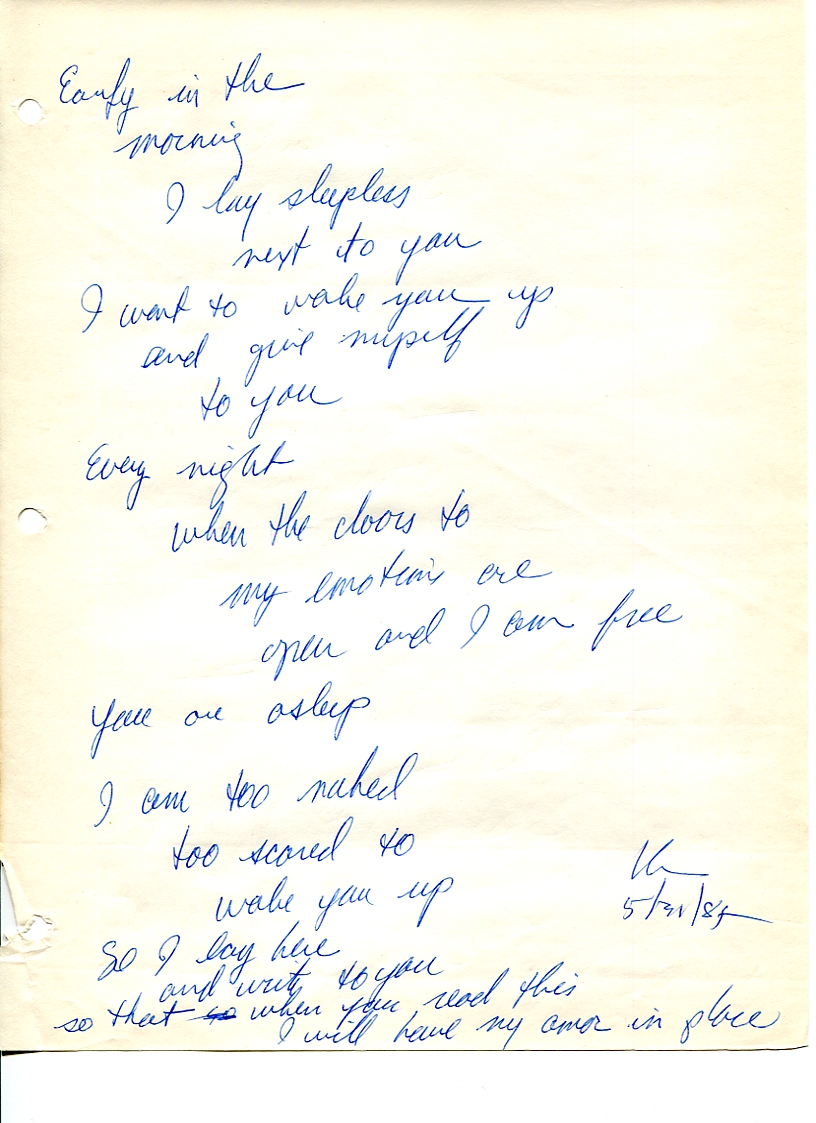 Early in the
morning
I lay sleepless
next to you
I want to wake you up
and give myself
to you
Every night
when the doors to
my emotions are
open and I am free
You are asleep
I am too naked
too scared to
wake you up
So I lay here
and write to you
so that so when you read this
I will have my amor in place
5/31/85